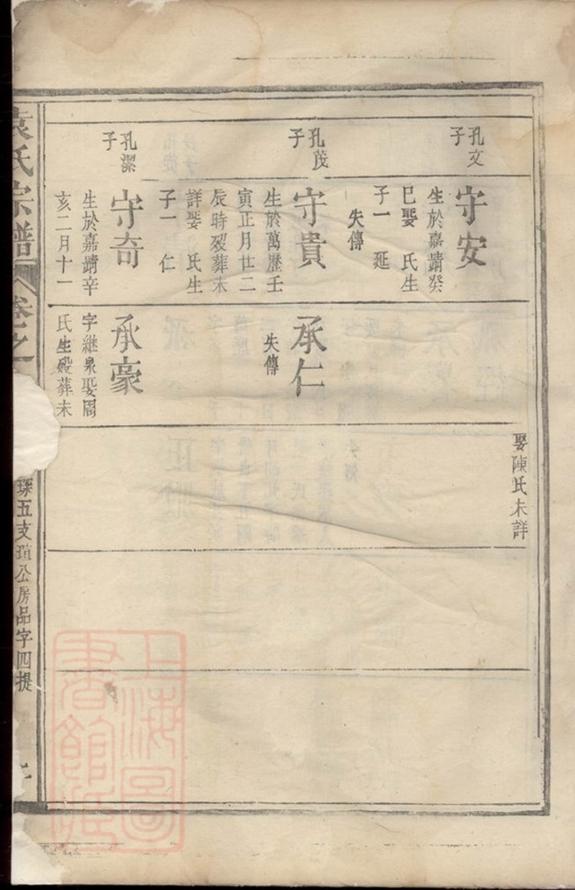 娶陳氏未詳
孔文
子
守安
生於嘉靖癸
巳娶 氏生
子一 延
失傳
孔茂
子
守貴
生於萬歷壬
寅正月廿二
辰時歿葬未
詳娶 氏生
子一 仁
承仁
失傳
孔潔
子
守奇
生於嘉靖辛
亥二月十一
承豪
字繼泉娶周
氏生歿葬未
袁氏宗譜
卷之
五支瑄公房品字四提
上海圖
書館藏